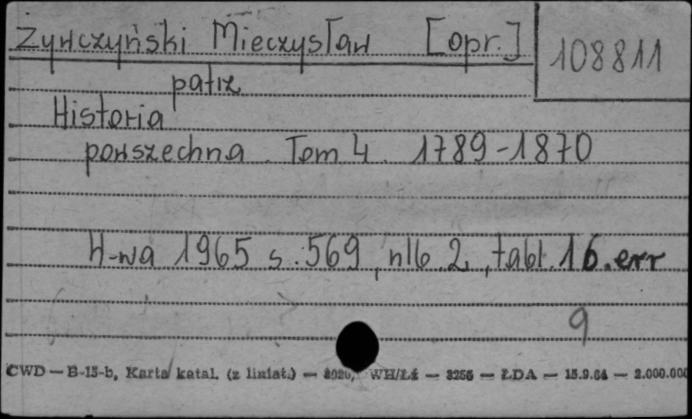 Żywczyński Mieczysław [opr.]
108811
patrz
Historia
powszechna. Tom 4. 1789-1870
W-wa 1965 s. 569, nlb. 2, tabl. 16. err
9
CWD — B-15-b, Karta katal. (z liniat.) — WH/Łź — 3256 — ŁDA — 15.9.64 — 2.000.000